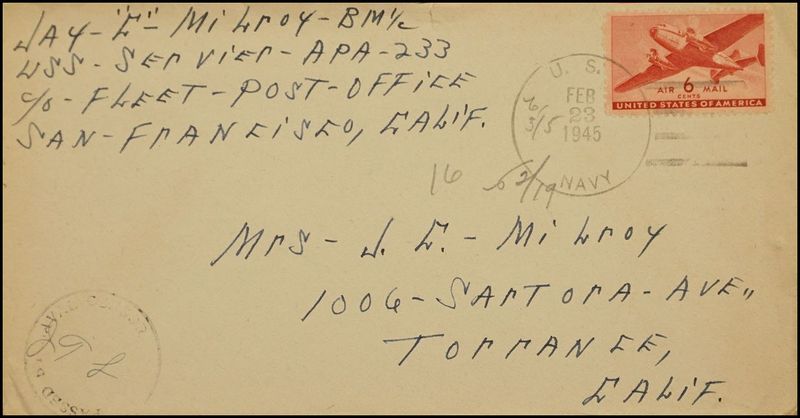 JAY-"E"-MilroY-BM1/c
USS-SErviEr-APA-233
c/o-FLEET-POST-OFFICE
SAN-FrANCISCO, CALIF.
U. S.
FEB
23
1945
NAVY
AIR 6 MAIL
CENTS
UNITED STATES OF AMERICA
16
2/19
Mrs-J. E.-MilroY
1006-SArtorA-AVE,,
TorrANCE,
CALIF.
PASSED BY NAVAL CENSOR